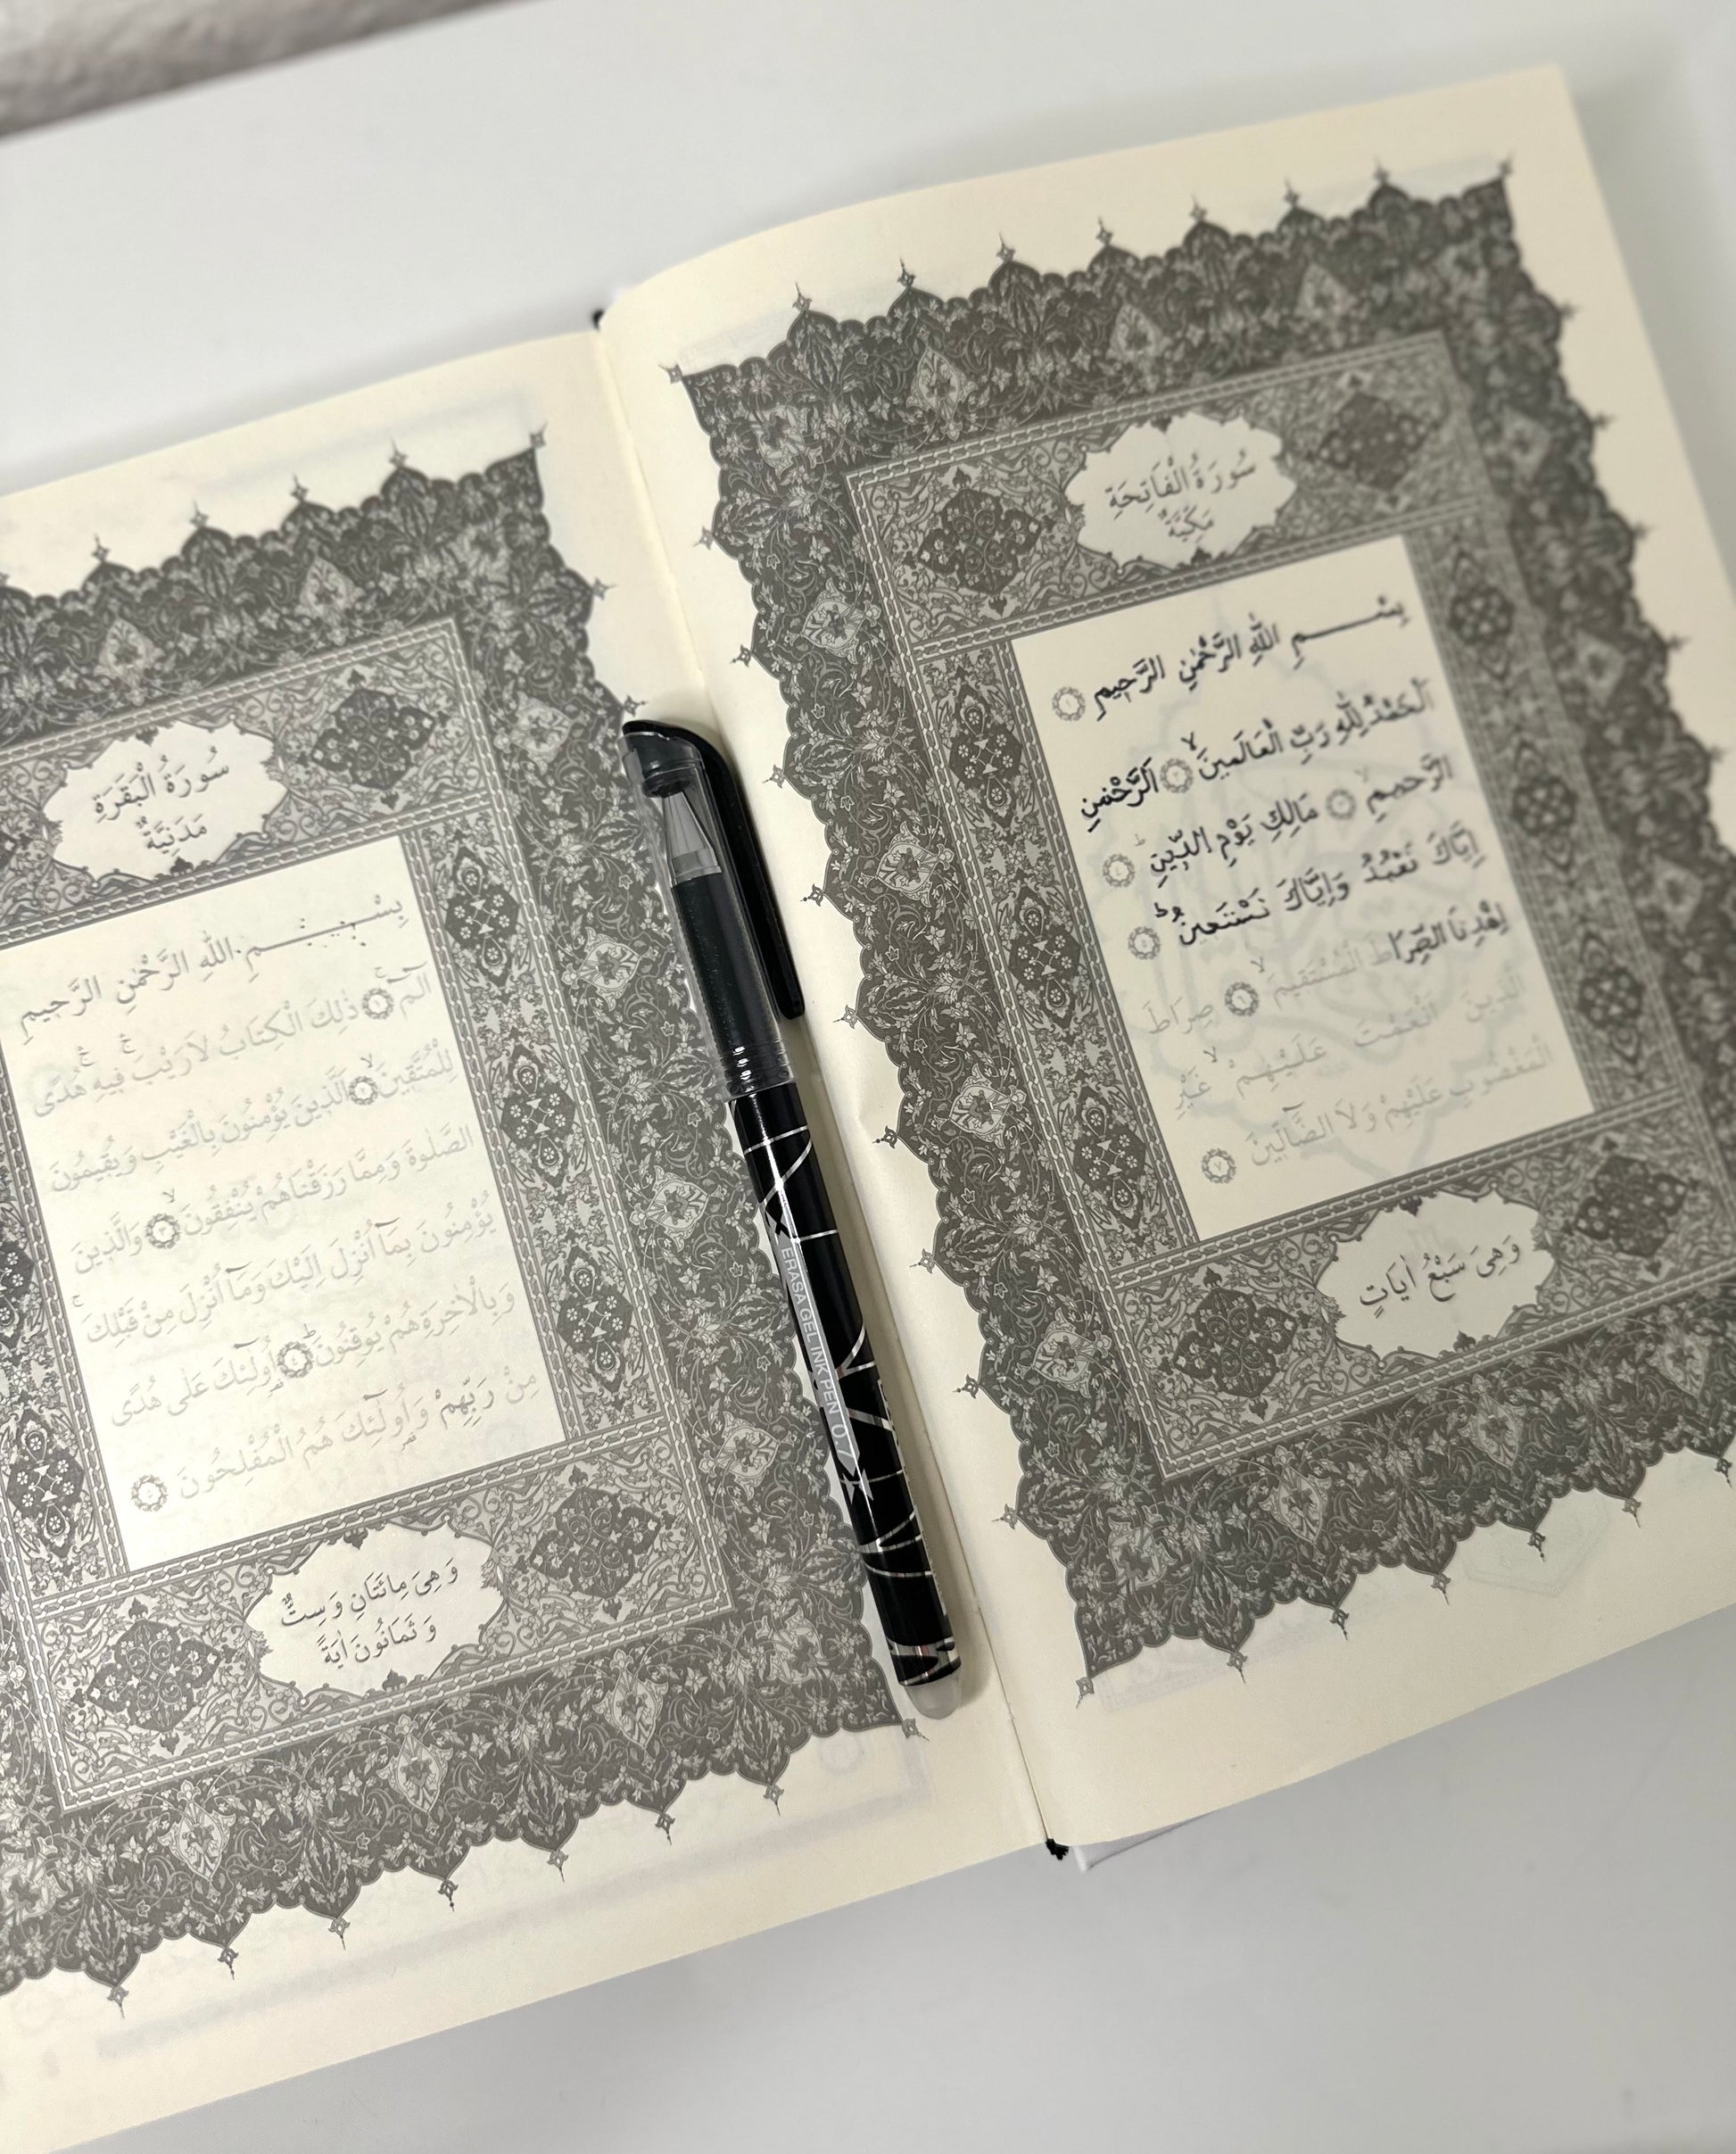 سُورَةُ الْفَاتِحَةِ
مَكِّيَّةٌ
بِسْـــــمِ اللّٰهِ الرَّحْمٰنِ الرَّحِيمِ ١
اَلْحَمْدُ لِلّٰهِ رَبِّ الْعَالَمِينَۙ ٢ اَلرَّحْمٰنِ
الرَّحِيمِۙ ٣ مَالِكِ يَوْمِ الدِّينِۜ ٤
اِيَّاكَ نَعْبُدُ وَاِيَّاكَ نَسْتَعِينُۜ ٥
اِهْدِنَا الصِّرَاطَ الْمُسْتَقِيمَۙ ٦ صِرَاطَ
الَّذِينَ اَنْعَمْتَ عَلَيْهِمْۙ غَيْرِ
الْمَغْضُوبِ عَلَيْهِمْ وَلَا الضَّٓالِّينَ ٧
وَهِيَ سَبْعُ اٰيَاتٍ
سُورَةُ الْبَقَرَةِ
مَدَنِيَّةٌ
بِسْـــــمِ اللّٰهِ الرَّحْمٰنِ الرَّحِيمِ
الٓمٓۚ ١ ذٰلِكَ الْكِتَابُ لَا رَيْبَۚ فِيهِۚ هُدًى
لِلْمُتَّقِينَۙ ٢ اَلَّذِينَ يُؤْمِنُونَ بِالْغَيْبِ وَيُقِيمُونَ
الصَّلٰوةَ وَمِمَّا رَزَقْنَاهُمْ يُنْفِقُونَۙ ٣ وَالَّذِينَ
يُؤْمِنُونَ بِمَٓا اُنْزِلَ اِلَيْكَ وَمَٓا اُنْزِلَ مِنْ قَبْلِكَۚ
وَبِالْاٰخِرَةِ هُمْ يُوقِنُونَۜ ٤ اُو۬لٰٓئِكَ عَلٰى هُدًى
مِنْ رَبِّهِمْ وَاُو۬لٰٓئِكَ هُمُ الْمُفْلِحُونَ ٥
وَهِيَ مِائَتَانِ وَسِتٌّ
وَثَمَانُونَ اٰيَةً
ERASA GEL INK PEN 0.7